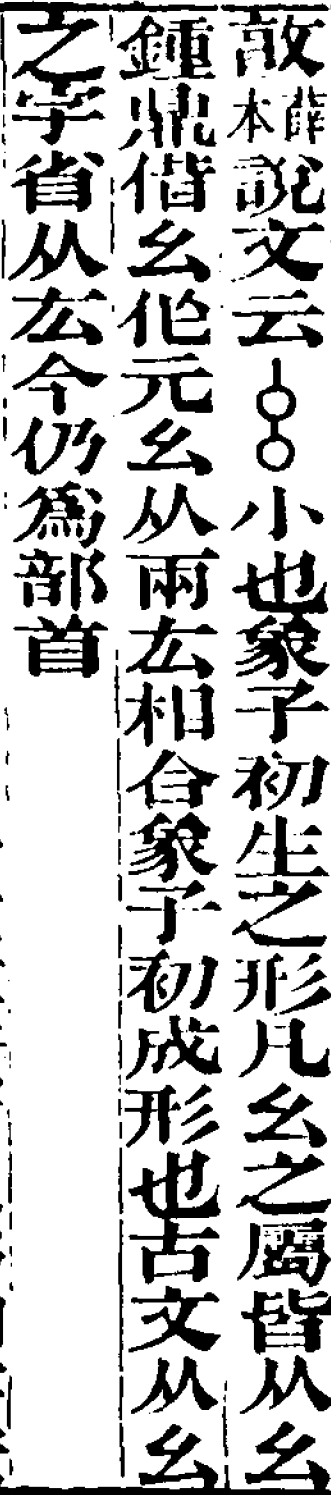 敦薛本說文云小也象子初生之形凡幺之屬皆从幺
鍾鼎借幺作元幺从兩厷相合象子初成形也古文从幺
之字省从厷今仍爲部首